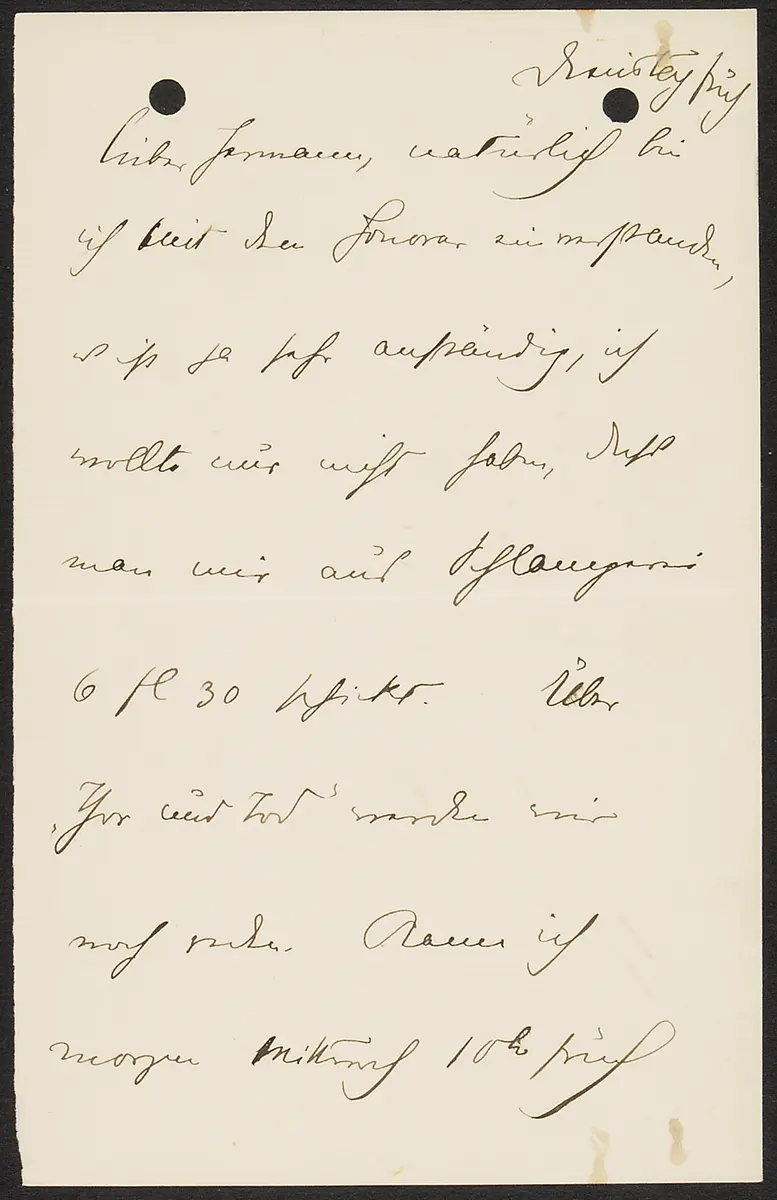 Dienstag früh
lieber Hermann, natürlich bin
ich mit dem Honorar einverstanden,
es ist ja sehr anständig, ich
wollte nur nicht haben, dass
man mir aus Schlamperei
6 fl 30 schickt. Über
„Thor und Tod" werden wir
noch reden. Kann ich
morgen Mittwoch 10h früh